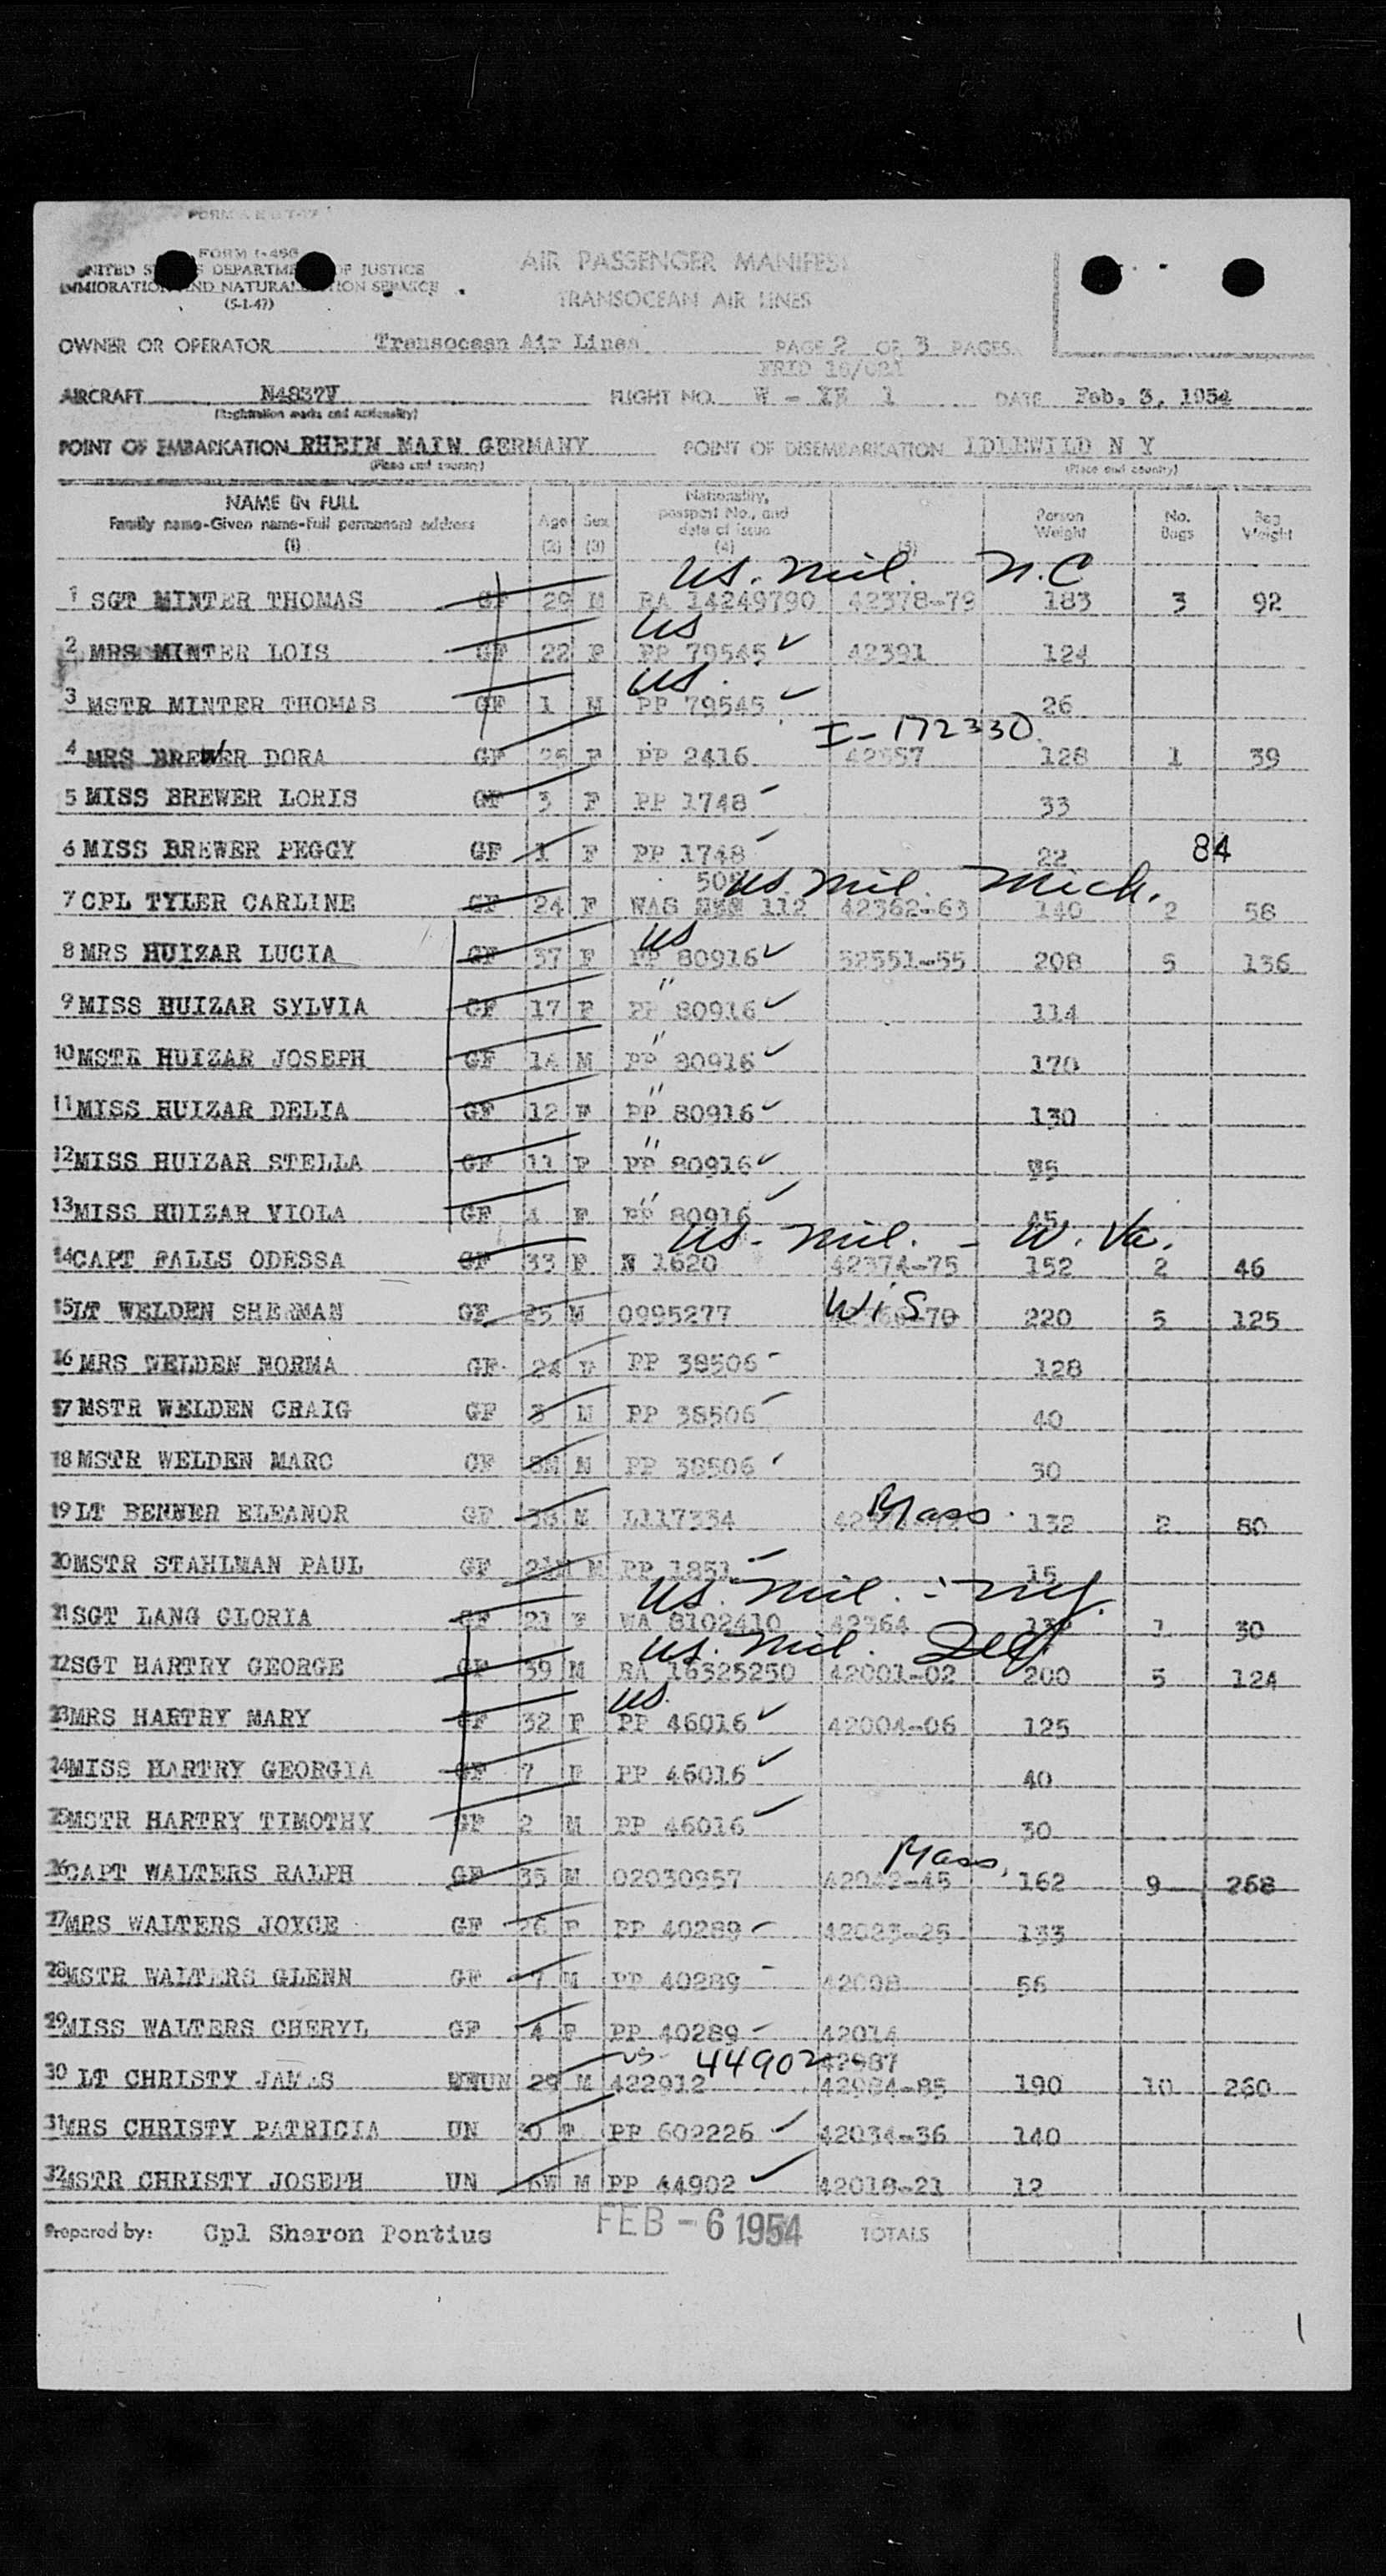 FORM I-466
UNITED STATES DEPARTMENT OF JUSTICE
IMMIGRATION AND NATURALIZATION SERVICE
(5-1-47)
AIR PASSENGER MANIFEST
TRANSOCEAN AIR LINES
OWNER OR OPERATOR Transocean Air Lines PAGE 2 OF 3 PAGES
FRID 16/021
AIRCRAFT N4837V FLIGHT NO. W - 1 DATE Feb. 3, 1954
(Registration marks and nationality)
POINT OF EMBARKATION RHEIN MAIN GERMANY POINT OF DISEMBARKATION IDLEWILD N Y
(Place and country) (Place and country)
NAME IN FULL Family name-Given name-Full permanent address (1) Age (2) Sex (3) Nationality, passport No., and date of issue (4) (5) Person Weight No. Bags Bag Weight
US. Mil. N.C
1 SGT MINTER THOMAS GF 29 M RA 14249790 42378-79 183 3 92
US
2 MRS MINTER LOIS GF 22 F PP 79545 ✓ 42391 124
US.
3 MSTR MINTER THOMAS GF 1 M PP 79545 ✓ 26
I-172330
4 MRS BREWER DORA GF 26 F PP 2416 42357 128 1 39
5 MISS BREWER LORIS GF 3 F PP 1748 33
6 MISS BREWER PEGGY GF 1 F PP 1748 22 84
US. Mil. Mich.
7 CPL TYLER CARLINE GF 24 F WAG 112 42362-63 140 2 58
US
8 MRS HUIZAR LUCIA GF 37 F PP 80916 ✓ 52551-55 208 5 136
"
9 MISS HUIZAR SYLVIA GF 17 F PP 80916 ✓ 114
"
10 MSTR HUIZAR JOSEPH GF 14 M PP 80916 ✓ 170
"
11 MISS HUIZAR DELIA GF 12 F PP 80916 ✓ 130
"
12 MISS HUIZAR STELLA GF 11 F PP 80916 ✓ 95
"
13 MISS HUIZAR VIOLA GF 4 F PP 80916 ✓ 45
US- Mil. - W. Va.
14 CAPT FALLS ODESSA GF 33 F N 1620 42374-75 152 2 46
Wis
15 LT WELDEN SHERMAN GF 25 M 0995277 220 5 125
16 MRS WELDEN NORMA GF 24 F PP 38506 128
17 MSTR WELDEN CRAIG GF 3 M PP 38506 40
18 MSTR WELDEN MARC GF 8M M PP 38506 30
Mass.
19 LT BENNER ELEANOR GF 38 M L117334 132 2 80
20 MSTR STAHLMAN PAUL GF M PP 1851 15
US. Mil. - NY.
21 SGT LANG GLORIA GF 21 F WA 8102410 42364 1 30
US. Mil. Ill
22 SGT HARTRY GEORGE GF 39 M RA 16325250 42001-02 200 5 124
US.
23 MRS HARTRY MARY GF 32 F PP 46016 ✓ 42004-06 125
24 MISS HARTRY GEORGIA GF 7 F PP 46016 ✓ 40
25 MSTR HARTRY TIMOTHY GF 2 M PP 46016 ✓ 30
Mass.
26 CAPT WALTERS RALPH GF 35 M 02030957 42042-45 162 9 268
27 MRS WALTERS JOYCE GF 26 F PP 40289 42023-25 133
28 MSTR WALTERS GLENN GF 7 M PP 40289 42008 56
29 MISS WALTERS CHERYL GF 4 F PP 40289 42014
US- 44902 42987
30 LT CHRISTY JAMES UN 29 M 422912 42984-85 190 10 260
31 MRS CHRISTY PATRICIA UN 30 F PP 602226 ✓ 42034-36 140
32 MSTR CHRISTY JOSEPH UN 6W M PP 44902 ✓ 42018-21 12
Prepared by: Cpl Sharon Pontius FEB -6 1954 TOTALS
1